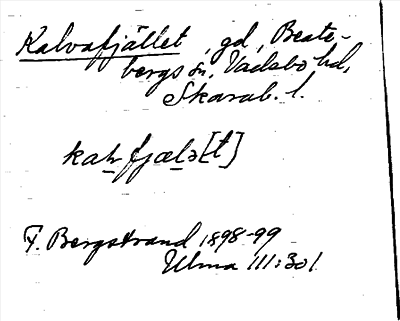 Kalvafjället, gd, Beate-
bergs sn, Vadsbo hd,
Skarab. l.
kaḻv fjæḻə[t]
F. Bergstrand 1898-99
Ulma 111:301